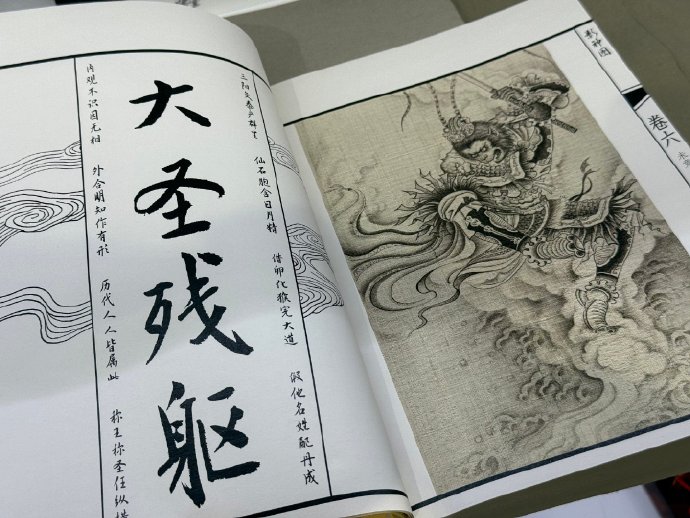 影神图
卷六
三阳交泰产群生 仙石胞含日月精 借卵化猴完大道 假他名姓配丹成
大圣残躯
内观不识因无相 外合明知作有形 历代人人皆属此 称王称圣任纵